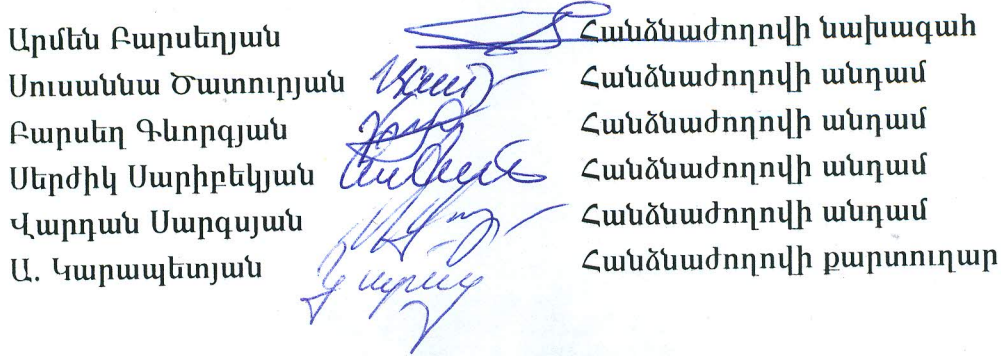 Արմեն Բարսեղյան Հանձնաժողովի նախագահ
Սուսաննա Ծատուրյան Հանձնաժողովի անդամ
Բարսեղ Գևորգյան Հանձնաժողովի անդամ
Սերժիկ Սարիբեկյան Հանձնաժողովի անդամ
Վարդան Սարգսյան Հանձնաժողովի անդամ
Ա. Կարապետյան Հանձնաժողովի քարտուղար